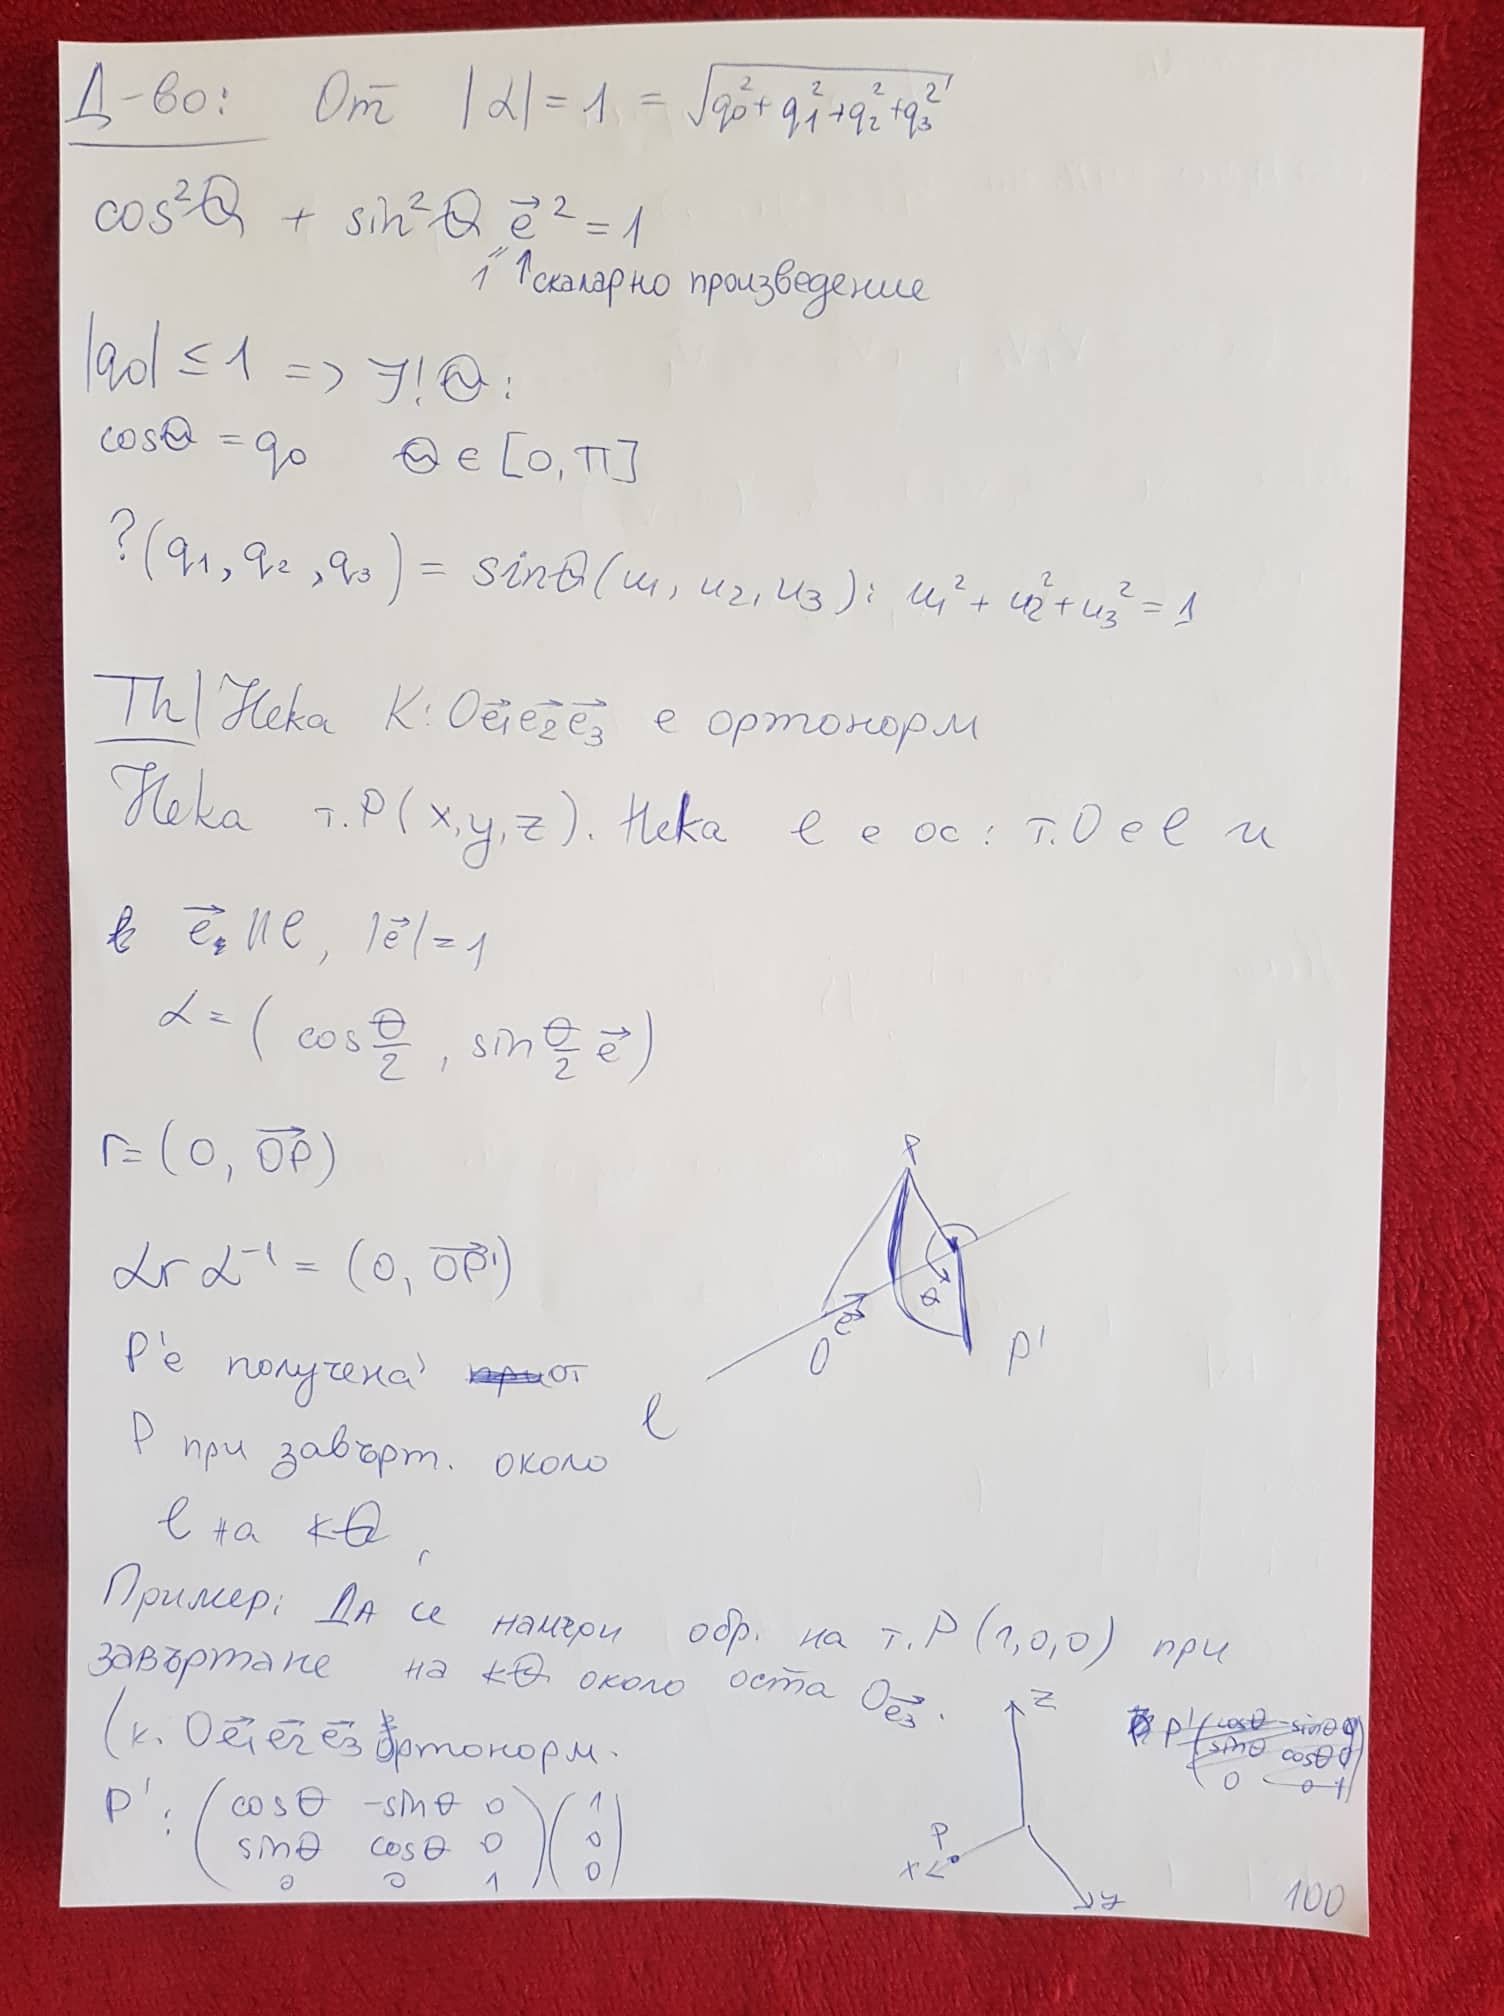 Д-во: От |α| = 1 = √(q0² + q1² + q2² + q3²)
cos²θ + sin²θ e⃗² = 1
1 ↑ скаларно произведение
|q0| ≤ 1 => ∃! θ:
cosθ = q0 θ ∈ [0, π]
? (q1, q2, q3) = sinθ(u1, u2, u3): u1² + u2² + u3² = 1
Th| Нека K: Oe⃗1e⃗2e⃗3 е ортонорм
Нека т. P(x, y, z). Нека l е ос: т. O ∈ l и
e⃗ || l, |e⃗| = 1
α = (cos θ/2, sin θ/2 e⃗)
r = (0, OP⃗)
α r α⁻¹ = (0, OP'⃗)
P' е получена от
P при завърт. около
l на ∢θ,
P
e⃗
θ
O
P'
l
Пример: Да се намери обр. на т. P (1, 0, 0) при
завъртане на ∢θ около оста Oe⃗3.
(к. Oe⃗1e⃗2e⃗3 ортонорм.
P': (cosθ -sinθ 0) (1)
(sinθ cosθ 0) (0)
(0 0 1) (0)
z
P' (cosθ -sinθ 0
sinθ cosθ 0
0 0 1)
P
x
y
100